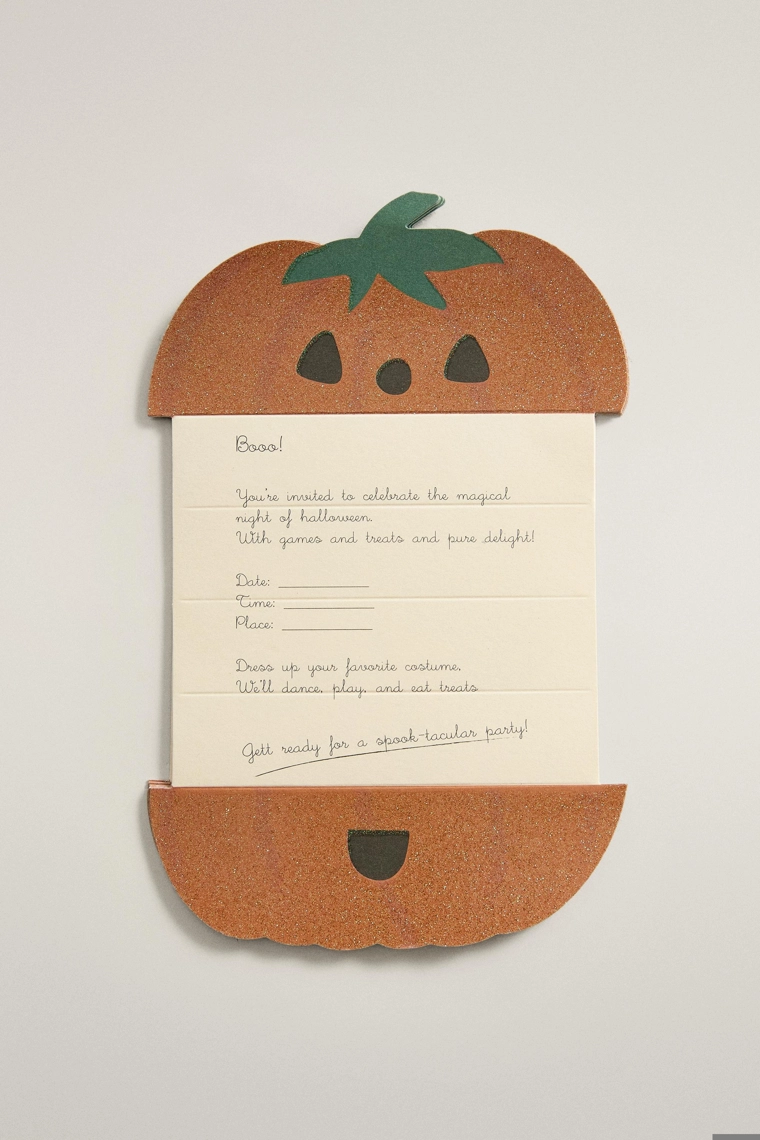 Booo!
You're invited to celebrate the magical
night of halloween.
With games and treats and pure delight!
Date: ____________
Time: ____________
Place: ____________
Dress up your favorite costume.
We'll dance, play, and eat treats
Gett ready for a spook-tacular party!